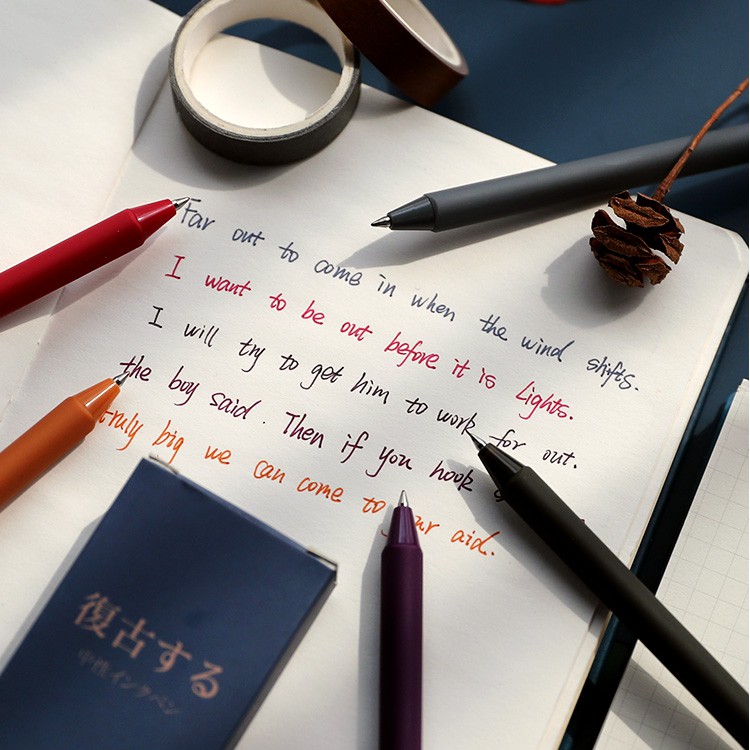 Far out to come in when the wind shifts.
I want to be out before it is Lights.
I will try to get him to work for out.
the boy said. Then if you hook
truly big we can come to your aid.
復古する
中性インクペン